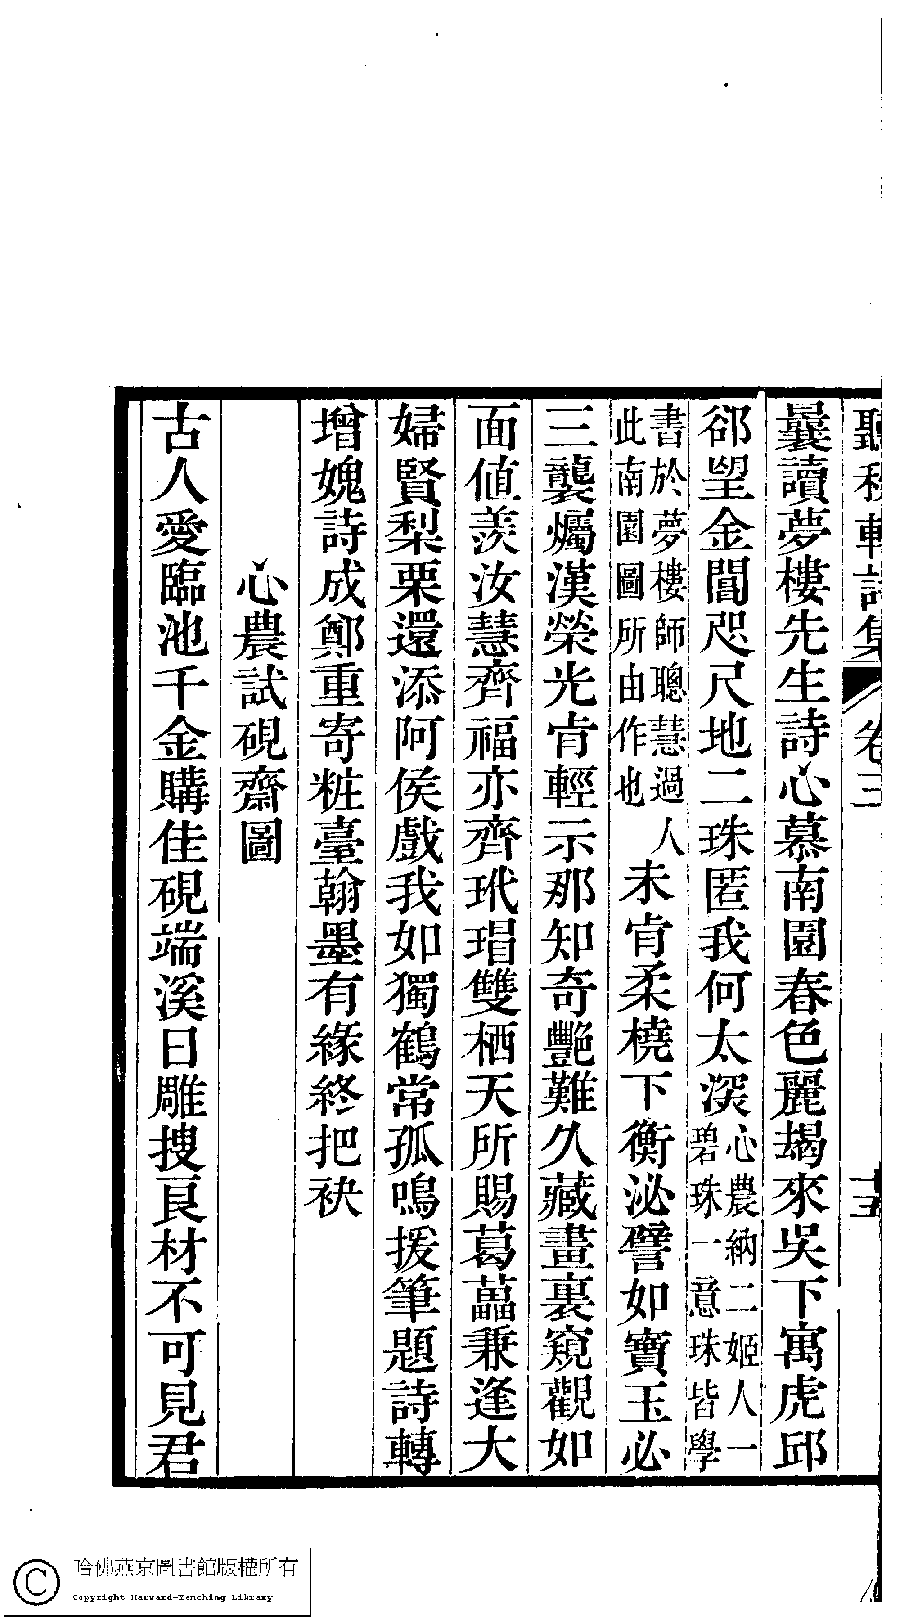 聽秋軒詩集 卷三 十五
曩讀夢樓先生詩心慕南園春色麗朅來吳下寓虎邱
郤望金閶咫尺地二珠匿我何太深心農納二姬人一
碧珠一意珠皆學
書於夢樓師聰慧過人
此南園圖所由作也未肯柔橈下衡泌譬如寶玉必
三襲爥漢榮光肯輕示那知奇艷難久藏畫裏窺觀如
面值羨汝慧齊福亦齊玳瑁雙栖天所賜葛藟秉逢大
婦賢梨栗還添阿侯戲我如獨鶴常孤鳴援筆題詩轉
增媿詩成鄭重寄粧臺翰墨有緣終把袂
心農試硯齋圖
古人愛臨池千金購佳硯端溪日雕搜良材不可見君
哈佛燕京圖書館版權所有
Copyright Harvard-Yenching Library